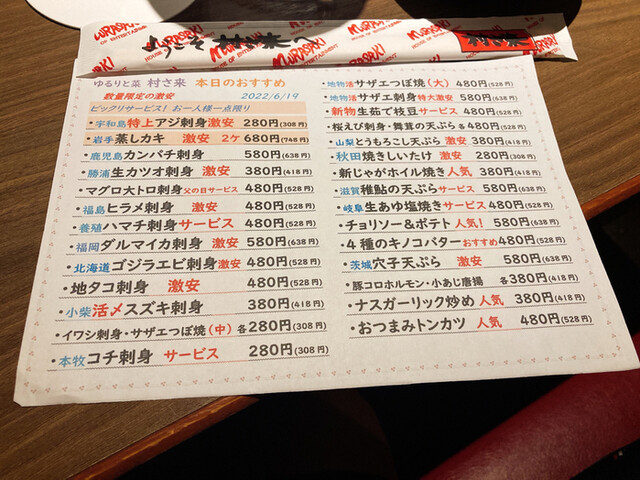 MURASAKI
HOUSE OF ENTERTAINMENT
MURASAKI
HOUSE OF ENTERTAINMENT
MURASAKI
HOUSE OF ENTERTAINMENT
ようこそ 村さ来へ
ゆるりと菜 村さ来 本日のおすすめ
数量限定の激安 2022/6/19
ビックリサービス! お一人様一点限り
・宇和島特上アジ刺身激安 280円(308円)
・岩手蒸しカキ 激安 2ケ 680円(748円)
・鹿児島カンパチ刺身 580円(638円)
・勝浦生カツオ刺身 激安 380円(418円)
・マグロ大トロ刺身父の日サービス 480円(528円)
・福島ヒラメ刺身 激安 480円(528円)
・養殖ハマチ刺身サービス 480円(528円)
・福岡ダルマイカ刺身 激安 580円(638円)
・北海道ゴジラエビ刺身激安 480円(528円)
・地タコ刺身 激安 480円(528円)
・小柴活〆スズキ刺身 380円(418円)
・イワシ刺身・サザエつぼ焼(中) 各280円(308円)
・本牧コチ刺身 サービス 280円(308円)
・地物活サザエつぼ焼(大) 480円(528円)
・地物活サザエ刺身特大激安 580円(638円)
・新物生茹で枝豆サービス 480円(528円)
・桜えび刺身・舞茸の天ぷら各480円(528円)
・山梨とうもろこし天ぷら 激安 380円(418円)
・秋田焼きしいたけ 激安 280円(308円)
・新じゃがホイル焼き 人気 380円(418円)
・滋賀稚鮎の天ぷらサービス 580円(638円)
・岐阜生あゆ塩焼きサービス 480円(528円)
・チョリソー&ポテト 人気! 580円(638円)
・4種のキノコバターおすすめ480円(528円)
・茨城穴子天ぷら 激安 580円(638円)
・豚コロホルモン・小あじ唐揚 各380円(418円)
・ナスガーリック炒め 人気 380円(418円)
・おつまみトンカツ 人気 480円(528円)